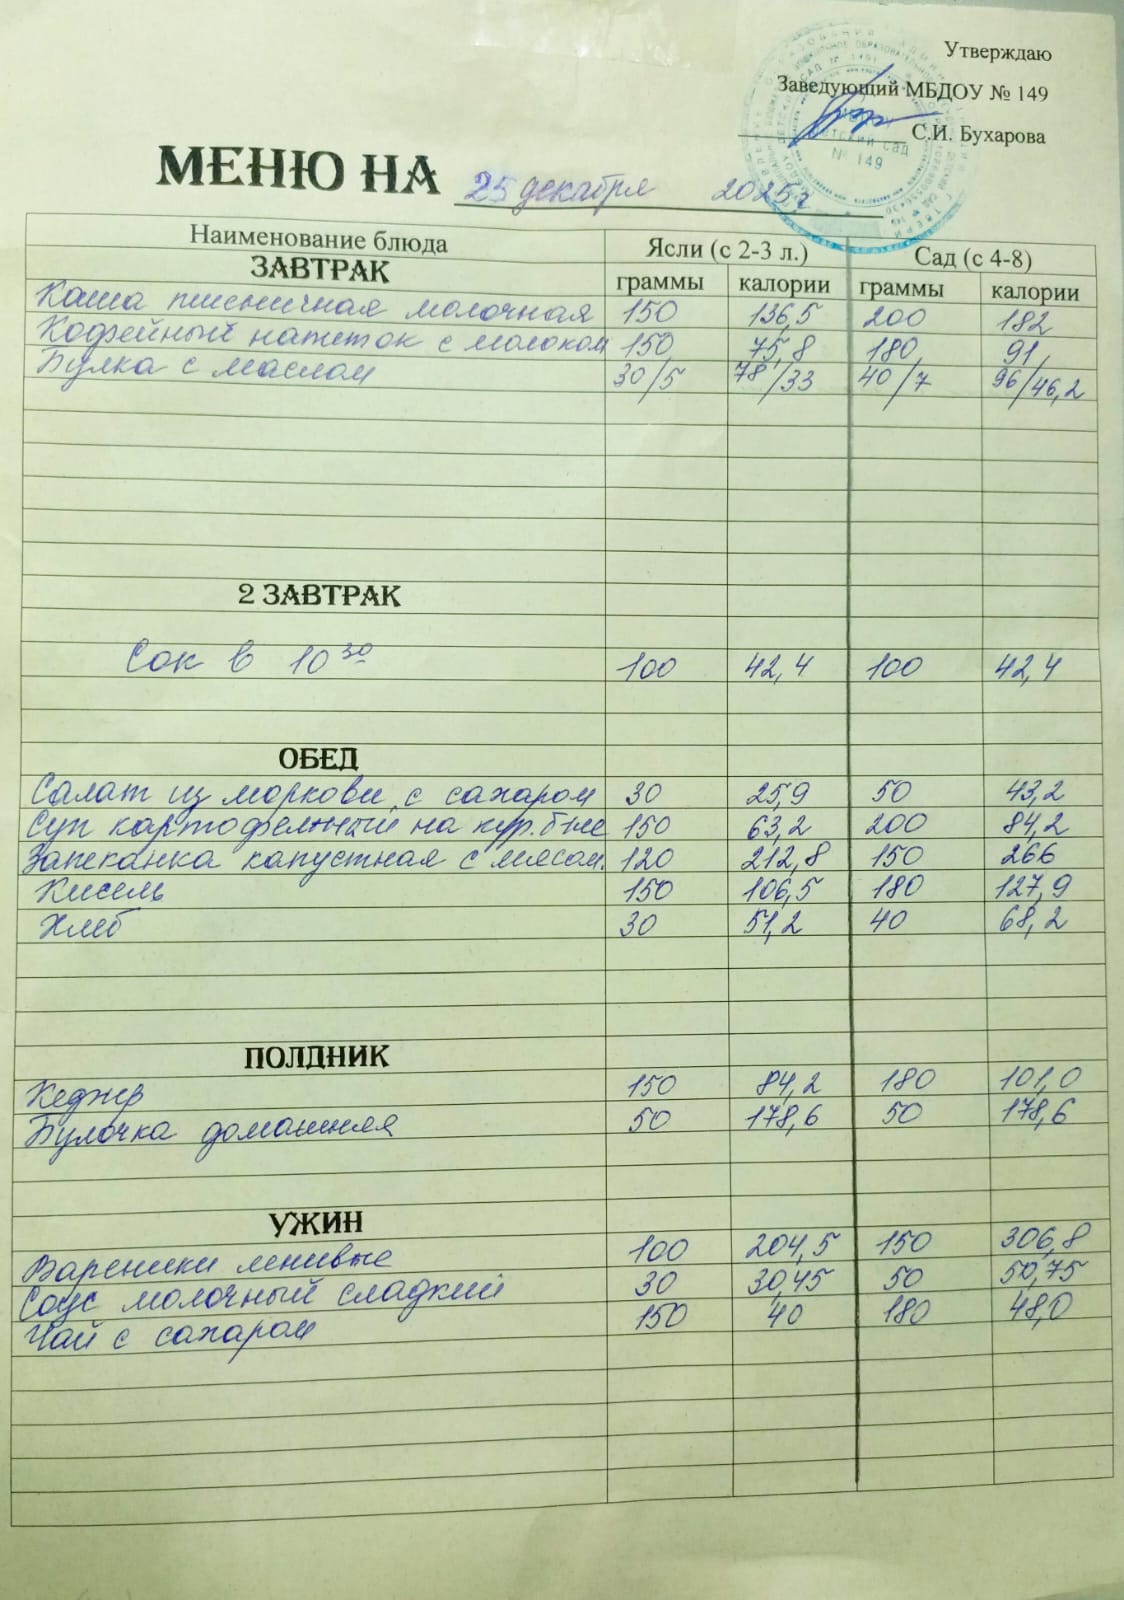 Утверждаю
Заведующий МБДОУ № 149
С.И. Бухарова
детский сад
№ 149
МЕНЮ НА 25 декабря 2025г
Наименование блюда Ясли (с 2-3 л.) Сад (с 4-8)
ЗАВТРАК граммы калории граммы калории
Каша пшеничная молочная 150 136,5 200 182
Кофейный напиток с молоком 150 75,8 180 91
Булка с маслом 30/5 78/33 40/7 96/46,2
2 ЗАВТРАК
Сок в 10 30 100 42,4 100 42,4
ОБЕД
Салат из моркови с сахаром 30 25,9 50 43,2
Суп картофельный на кур. б-не 150 63,2 200 84,2
Запеканка капустная с мясом. 120 212,8 150 266
Кисель 150 106,5 180 127,9
Хлеб 30 51,2 40 68,2
ПОЛДНИК
Кеджер 150 84,2 180 101,0
Булочка домашняя 50 178,6 50 178,6
УЖИН
Вареники ленивые 100 204,5 150 306,8
Соус молочный сладкий 30 30,45 50 50,75
Чай с сахаром 150 40 180 48,0